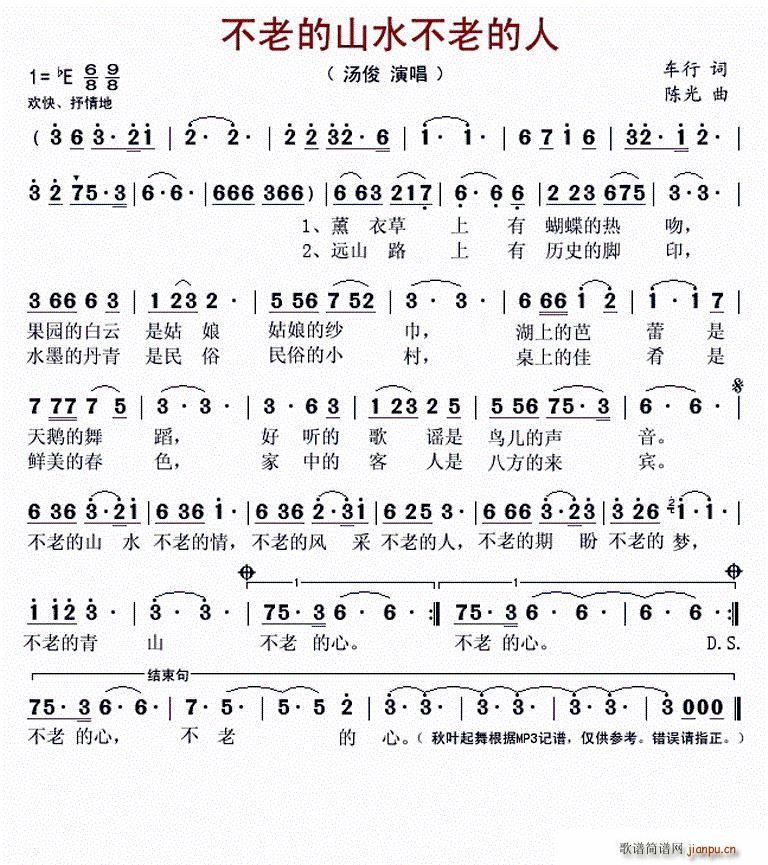 不老的山水不老的人
1=♭E 6/8 9/8 （ 汤俊 演唱 ） 车行 词
欢快、抒情地 陈光 曲
( 3 6 3· 2 1 | 2· 2· | 2 2 3 2· 6 | 1· 1· | 6 7 1 6 | 3 2· 1 2· |
3 2 7 5· 3 | 6· 6· | 666 366 ) | 6 6 3 2 1 7 | 6· 6 6 | 2 2 3 6 7 5 | 3· 3· |
1、薰 衣草 上 有 蝴蝶的热 吻，
2、远山 路 上 有 历史的脚 印，
3 6 6 6 3 | 1 2 3 2· | 5 5 6 7 5 2 | 3· 3· | 6 6 6 1 2 | 1· 1 7 |
果园的白云 是姑 娘 姑娘的纱 巾， 湖上的芭 蕾 是
水墨的丹青 是民 俗 民俗的小 村， 桌上的佳 肴 是
7 7 7 7 5 | 3· 3· | 3· 6 3 | 1 2 3 2 5 | 5 5 6 7 5· 3 | 6· 6· |
天鹅的舞 蹈， 好 听的 歌 谣是 鸟儿的声 音。
鲜美的春 色， 家 中的 客 人是 八方的来 宾。
6 3 6 3· 2 1 | 6 3 6 1· | 6 3 6 2· 3 1 | 6 2 5 3· | 6 6 6 3· 2 3 | 3 2 6 1· 1· |
不老的山 水 不老的情， 不老的风 采 不老的人， 不老的期 盼 不老的 梦，
1 1 2 3· | 3· 3· | 7 5· 3 6· 6· :‖ 7 5· 3 6· 6· | 6· 6· :‖
1 1
不老的青 山 不老 的心。 不老 的心。 D.S.
结束句
7 5· 3 6· 6· | 7· 5· | 5· 5 2 | 3· 3· | 3· 3· | 3 0 0 0 ‖
不老 的心， 不 老 的 心。（ 秋叶起舞根据MP3记谱，仅供参考。错误请指正。）
歌谱简谱网 jianpu.cn